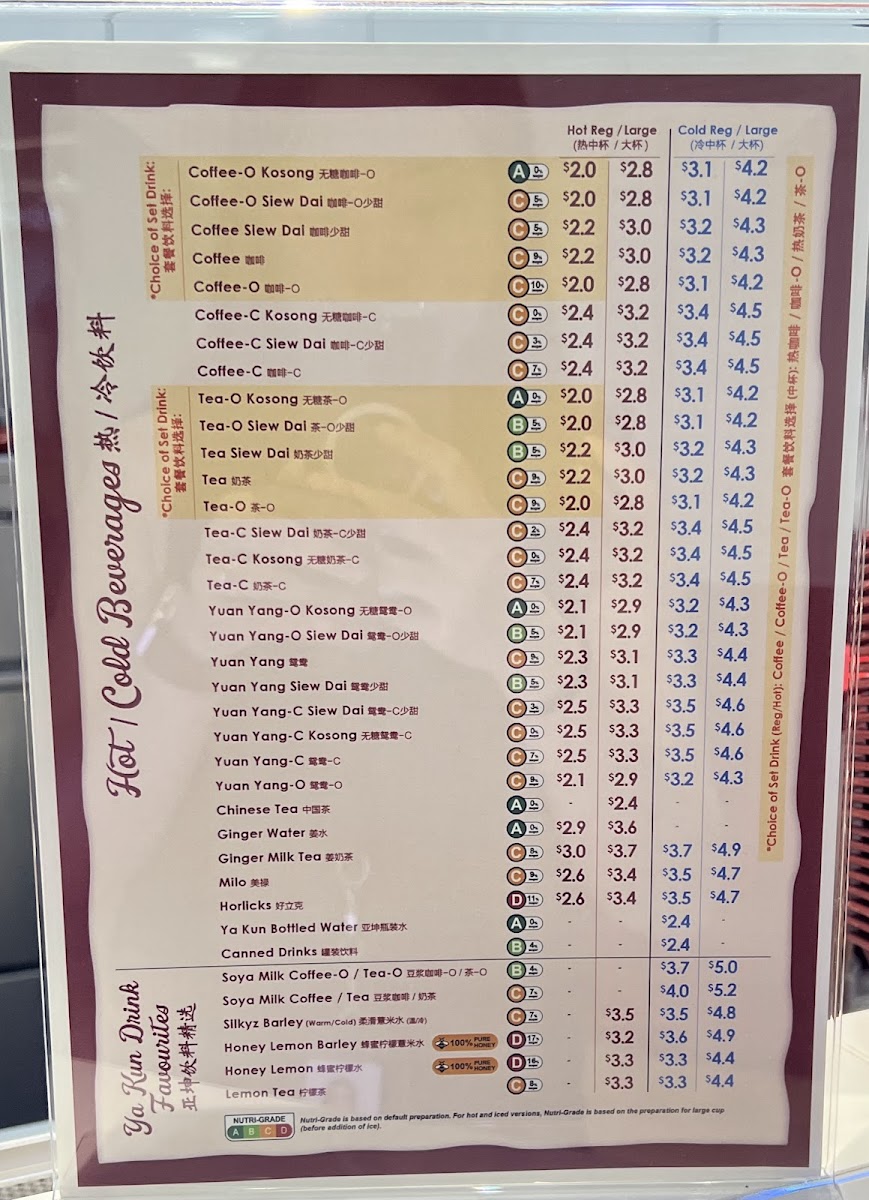 Hot Reg / Large Cold Reg / Large
(热中杯 / 大杯) (冷中杯 / 大杯)
Hot / Cold Beverages 热 / 冷饮料
*Choice of Set Drink:
套餐饮料选择:
Coffee-O Kosong 无糖咖啡-O A 0% $2.0 $2.8 $3.1 $4.2
Coffee-O Siew Dai 咖啡-O少甜 C 5% $2.0 $2.8 $3.1 $4.2
Coffee Siew Dai 咖啡少甜 C 5% $2.2 $3.0 $3.2 $4.3
Coffee 咖啡 C 9% $2.2 $3.0 $3.2 $4.3
Coffee-O 咖啡-O C 10% $2.0 $2.8 $3.1 $4.2
Coffee-C Kosong 无糖咖啡-C C 0% $2.4 $3.2 $3.4 $4.5
Coffee-C Siew Dai 咖啡-C少甜 C 3% $2.4 $3.2 $3.4 $4.5
Coffee-C 咖啡-C C 7% $2.4 $3.2 $3.4 $4.5
*Choice of Set Drink:
套餐饮料选择:
Tea-O Kosong 无糖茶-O A 0% $2.0 $2.8 $3.1 $4.2
Tea-O Siew Dai 茶-O少甜 B 5% $2.0 $2.8 $3.1 $4.2
Tea Siew Dai 奶茶少甜 B 5% $2.2 $3.0 $3.2 $4.3
Tea 奶茶 C 9% $2.2 $3.0 $3.2 $4.3
Tea-O 茶-O C 9% $2.0 $2.8 $3.1 $4.2
Tea-C Siew Dai 奶茶-C少甜 C 2% $2.4 $3.2 $3.4 $4.5
Tea-C Kosong 无糖奶茶-C C 0% $2.4 $3.2 $3.4 $4.5
Tea-C 奶茶-C C 7% $2.4 $3.2 $3.4 $4.5
Yuan Yang-O Kosong 无糖鸳鸯-O A 0% $2.1 $2.9 $3.2 $4.3
Yuan Yang-O Siew Dai 鸳鸯-O少甜 B 5% $2.1 $2.9 $3.2 $4.3
Yuan Yang 鸳鸯 C 9% $2.3 $3.1 $3.3 $4.4
Yuan Yang Siew Dai 鸳鸯少甜 B 5% $2.3 $3.1 $3.3 $4.4
Yuan Yang-C Siew Dai 鸳鸯-C少甜 C 3% $2.5 $3.3 $3.5 $4.6
Yuan Yang-C Kosong 无糖鸳鸯-C C 0% $2.5 $3.3 $3.5 $4.6
Yuan Yang-C 鸳鸯-C C 7% $2.5 $3.3 $3.5 $4.6
Yuan Yang-O 鸳鸯-O C 9% $2.1 $2.9 $3.2 $4.3
Chinese Tea 中国茶 A 0% - $2.4 - -
Ginger Water 姜水 A 0% $2.9 $3.6 - -
Ginger Milk Tea 姜奶茶 C 8% $3.0 $3.7 $3.7 $4.9
Milo 美禄 C 9% $2.6 $3.4 $3.5 $4.7
Horlicks 好立克 D 11% $2.6 $3.4 $3.5 $4.7
Ya Kun Bottled Water 亚坤瓶装水 A 0% - - $2.4 -
Canned Drinks 罐装饮料 B 4% - - $2.4 -
*Choice of Set Drink (Reg/Hot): Coffee / Coffee-O / Tea / Tea-O 套餐饮料选择 (中杯): 热咖啡 / 咖啡-O / 热奶茶 / 茶-O
Ya Kun Drink
Favourites
亚坤饮料精选
Soya Milk Coffee-O / Tea-O 豆浆咖啡-O / 茶-O B 4% - - $3.7 $5.0
Soya Milk Coffee / Tea 豆浆咖啡 / 奶茶 C 7% - - $4.0 $5.2
Silkyz Barley (Warm/Cold) 柔滑薏米水 (温/冷) C 7% - $3.5 $3.5 $4.8
Honey Lemon Barley 蜂蜜柠檬薏米水 100% PURE HONEY D 17% - $3.2 $3.6 $4.9
Honey Lemon 蜂蜜柠檬水 100% PURE HONEY D 16% - $3.3 $3.3 $4.4
Lemon Tea 柠檬茶 C 8% - $3.3 $3.3 $4.4
NUTRI-GRADE
A B C D
Nutri-Grade is based on default preparation. For hot and iced versions, Nutri-Grade is based on the preparation for large cup
(before addition of ice).